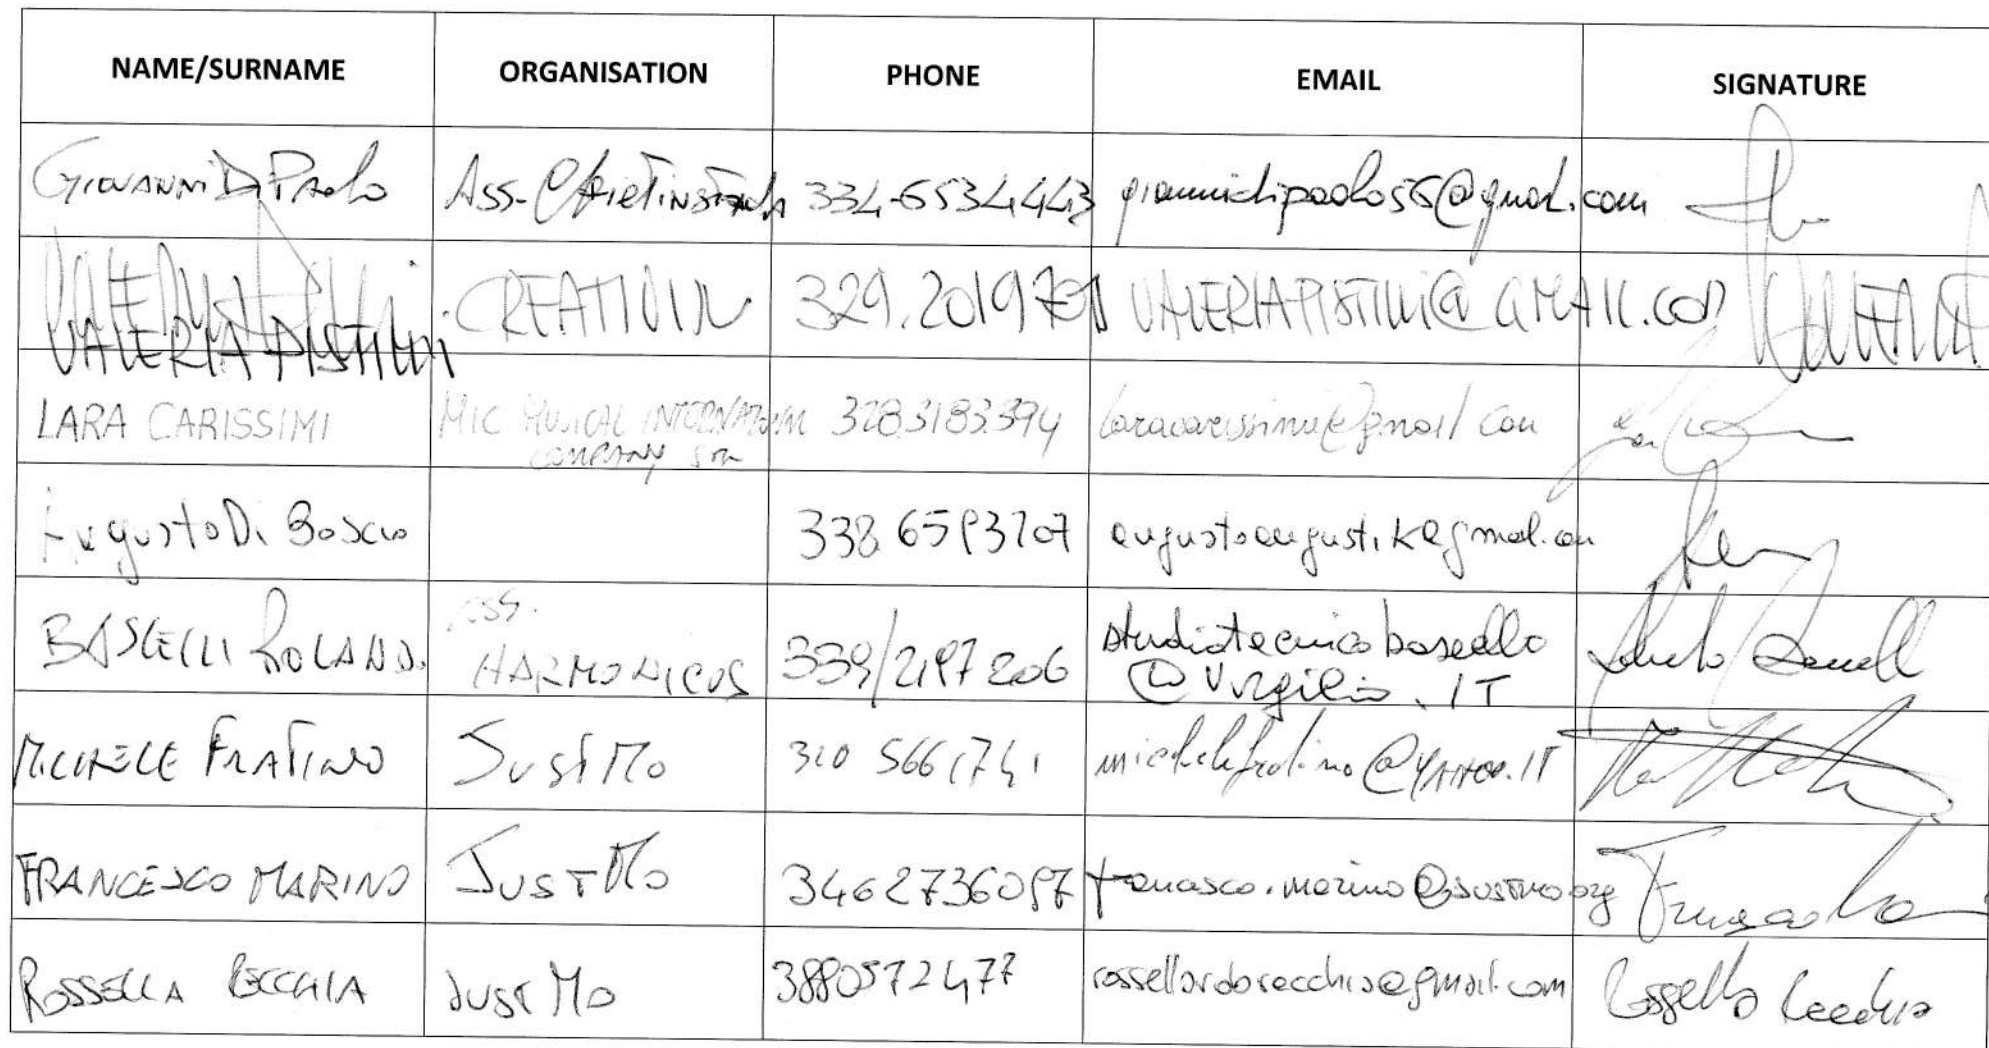 NAME/SURNAME ORGANISATION PHONE EMAIL SIGNATURE
Giovanni Di Paolo Ass. 334-6534443 giannidipaolo55@gmail.com
VALERIA PISTILLI CREATIVIN 329.2019701 VALERIAPISTILLI@GMAIL.COM
LARA CARISSIMI MIC MUSICAL INTERNATIONAL 3283183394 laracarissimi@gmail com
COMPANY
Augusto Di Boscio 338 augustoaugustik@gmail.com
BASCELLI ROLANDO ASS. HARMONICUS 339/2197206 studiotecnicobascello
@Virgilio.IT
MICHELE FRATINO JustMo 320 michelefratino@YAHOO.IT
FRANCESCO MARINO JustMo 3462736097 francesco.marino@justmo.org
ROSSELLA RECCHIA Just Mo 3880572477 Rossella Recchia